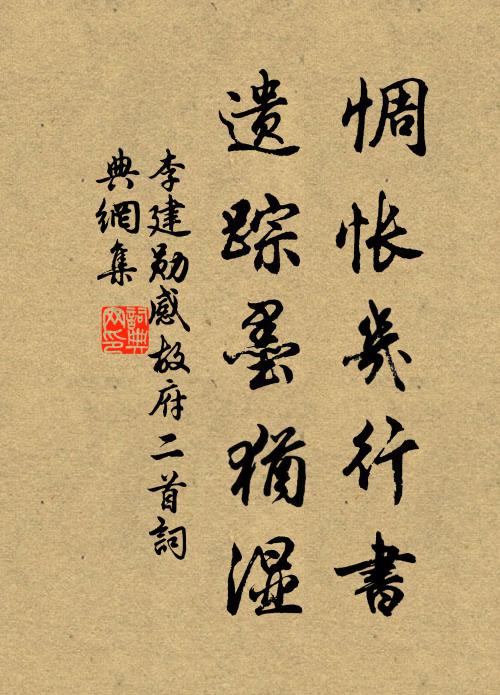 惆怅几行書
遗踪墨猶湿
李建勋感故府二首詞
典網集
詞典
网印